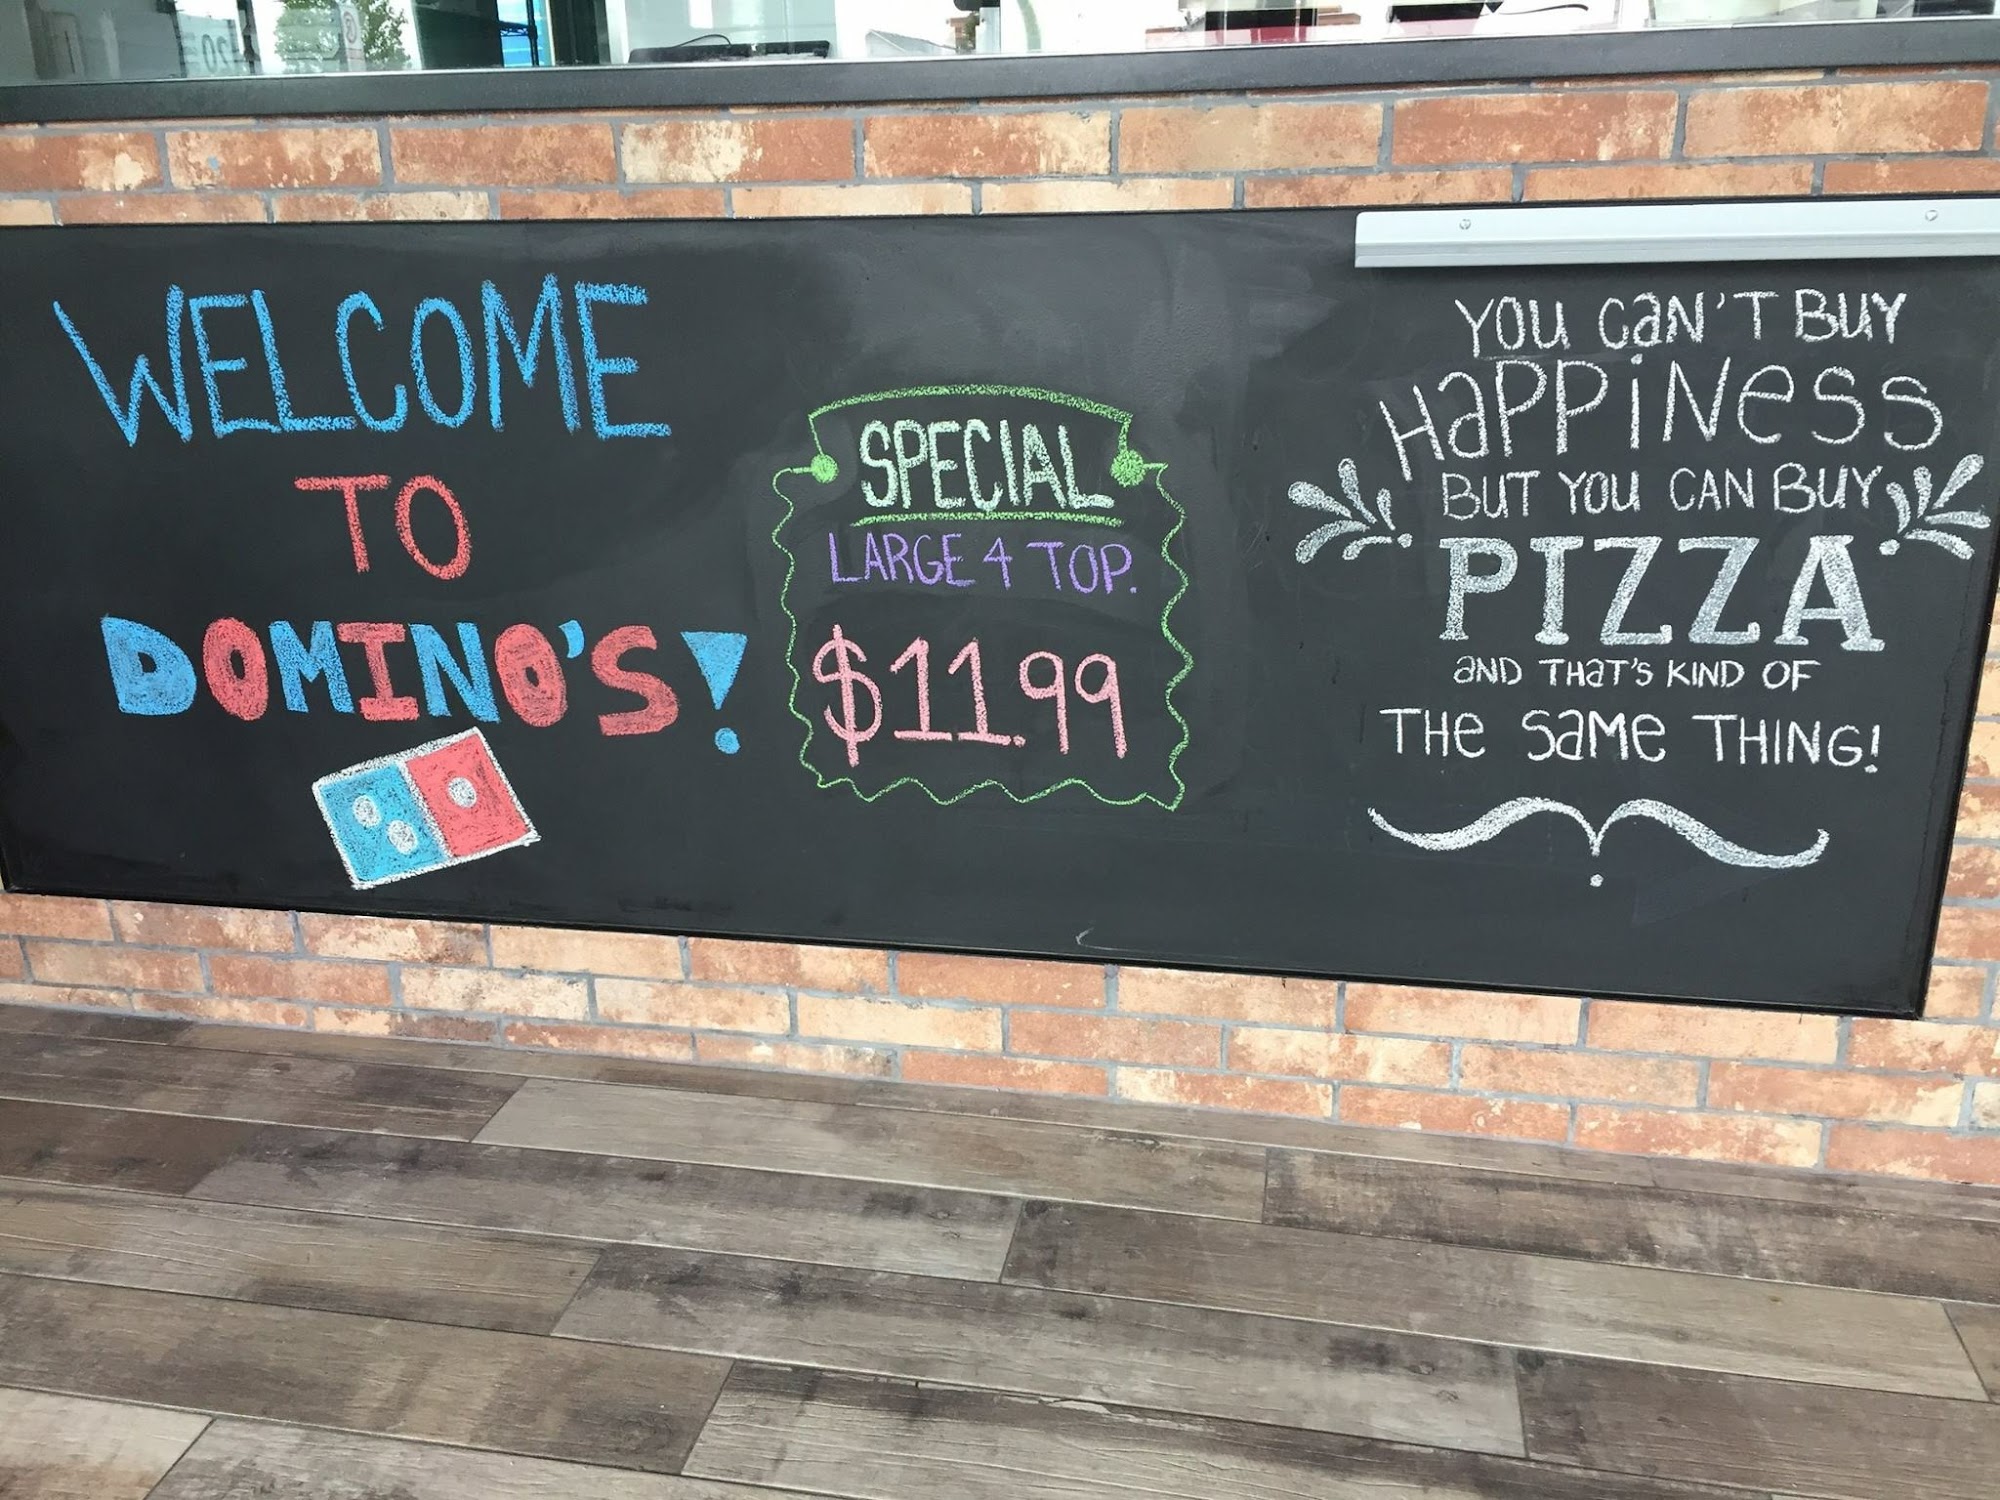 WELCOME
TO
DOMINO'S!
SPECIAL
LARGE 4 TOP.
$11.99
YOU CAN'T BUY
HAPPINESS
BUT YOU CAN BUY
PIZZA
AND THAT'S KIND OF
THE SAME THING!